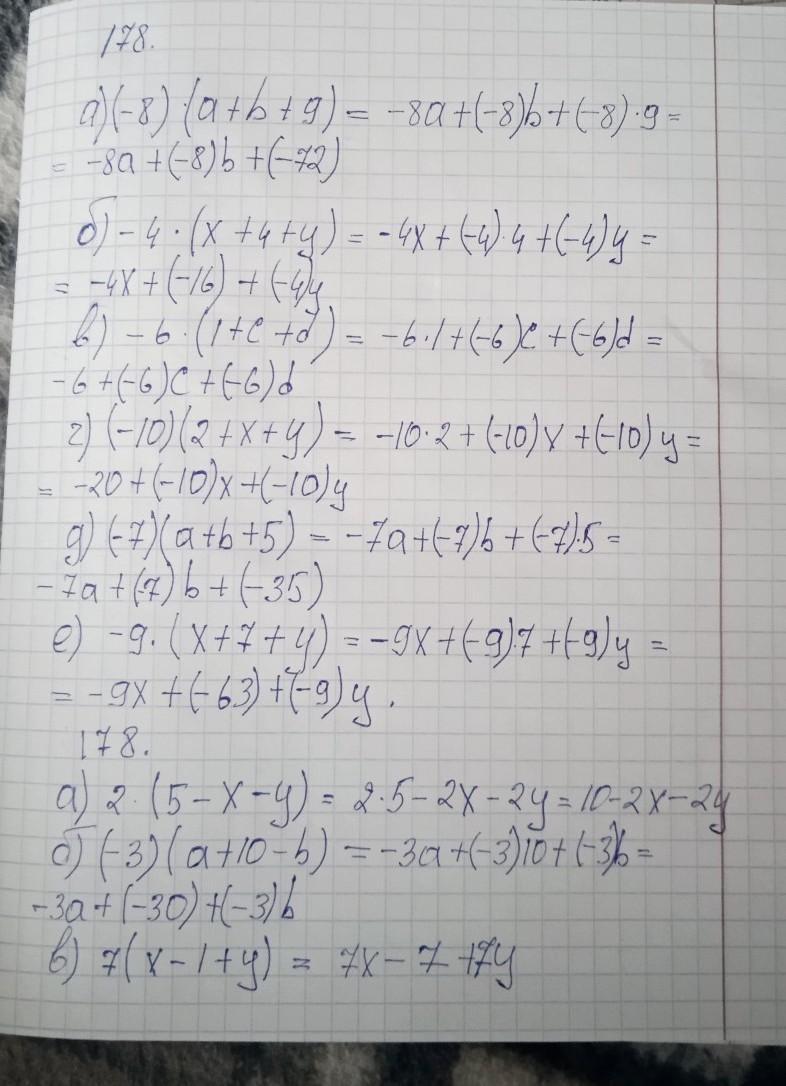 178.
а) (-8)·(a+b+9) = -8a+(-8)b+(-8)·9=
= -8a+(-8)b+(-72)
б) -4·(x+4+y) = -4x+(-4)·4+(-4)y=
= -4x+(-16)+(-4)y
в) -6·(1+c+d) = -6·1+(-6)c+(-6)d=
-6+(-6)c+(-6)d
г) (-10)(2+x+y) = -10·2+(-10)x+(-10)y=
= -20+(-10)x+(-10)y
д) (-7)(a+b+5) = -7a+(-7)b+(-7)·5=
-7a+(-7)b+(-35)
е) -9·(x+7+y) = -9x+(-9)·7+(-9)y=
= -9x+(-63)+(-9)y.
178.
а) 2·(5-x-y) = 2·5-2x-2y=10-2x-2y
б) (-3)(a+10-b) = -3a+(-3)10+(-3)b=
-3a+(-30)+(-3)b
в) 7(x-1+y) = 7x-7+7y